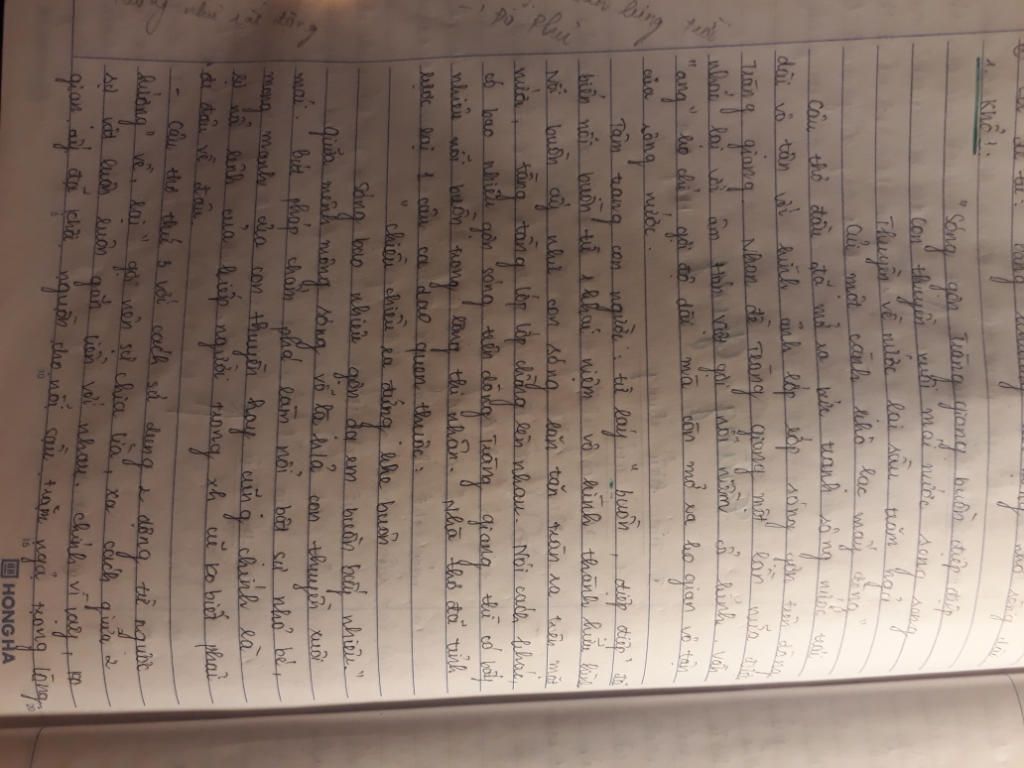 1. Khổ 1:
" Sóng gợn tràng giang buồn điệp điệp
Con thuyền xuôi mái nước song song
Thuyền về nước lại sầu trăm ngả
Củi một cành khô lạc mấy dòng"
Câu thơ đầu đã mở ra bức tranh sông nước trải
dài vô tận với hình ảnh lớp lớp sóng gợn trên dòng
Tràng giang. Nhan đề Tràng giang một lần nữa được
nhắc lại với âm thần gợi nỗi niềm cổ kính, vần
"ang" ko chỉ gợi độ dài mà còn mở ra ko gian vô tận
của sông nước.
Tâm trạng con người: từ láy "buồn, điệp điệp" đã
biến nỗi buồn từ 1 khái niệm vô hình thành hữu hình
Nỗi buồn ấy như con sóng lăn tăn tràn ra trên mọi
nữa, tầng tầng lớp lớp chồng lên nhau. Nói cách khác,
có bao nhiêu gợn sóng trên dòng tràng giang thì có bấy
nhiêu nỗi buồn trong lòng thi nhân. Nhà thơ đã tinh
lược lại 1 câu ca dao quen thuộc:
" Chiều chiều ra đứng
Sóng bao nhiêu gợn dạ em buồn bấy nhiêu"
Giữa mênh mông sóng vỗ là h/ả con thuyền xuôi
mái bé phó làm nổi bật sự nhỏ bé,
mong manh của con thuyền hay cũng chính là
sự nổi lênh của kiếp người trong xh cũ ko biết phải
đi đâu về đâu
- Câu thơ thứ 3 với cách sử dụng 2 động từ ngược
hướng "về, lại" gợi nên sự chia lìa, xa cách giữa 2
sự vật luôn luôn gắn liền với nhau. Chính vì vậy, ko
gian ấy đã khơi nguồn cho nỗi sầu trăm ngả trong lòng
5
10
15
20
HONG HA